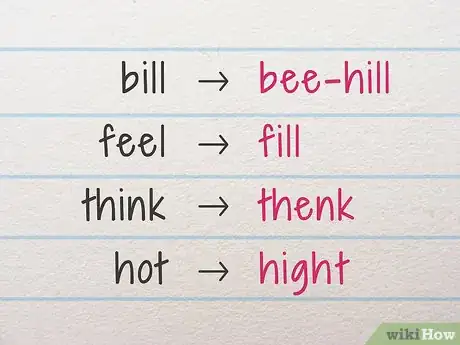 bill → bee-hill
feel → fill
think → thenk
hot → hight
wikiHow